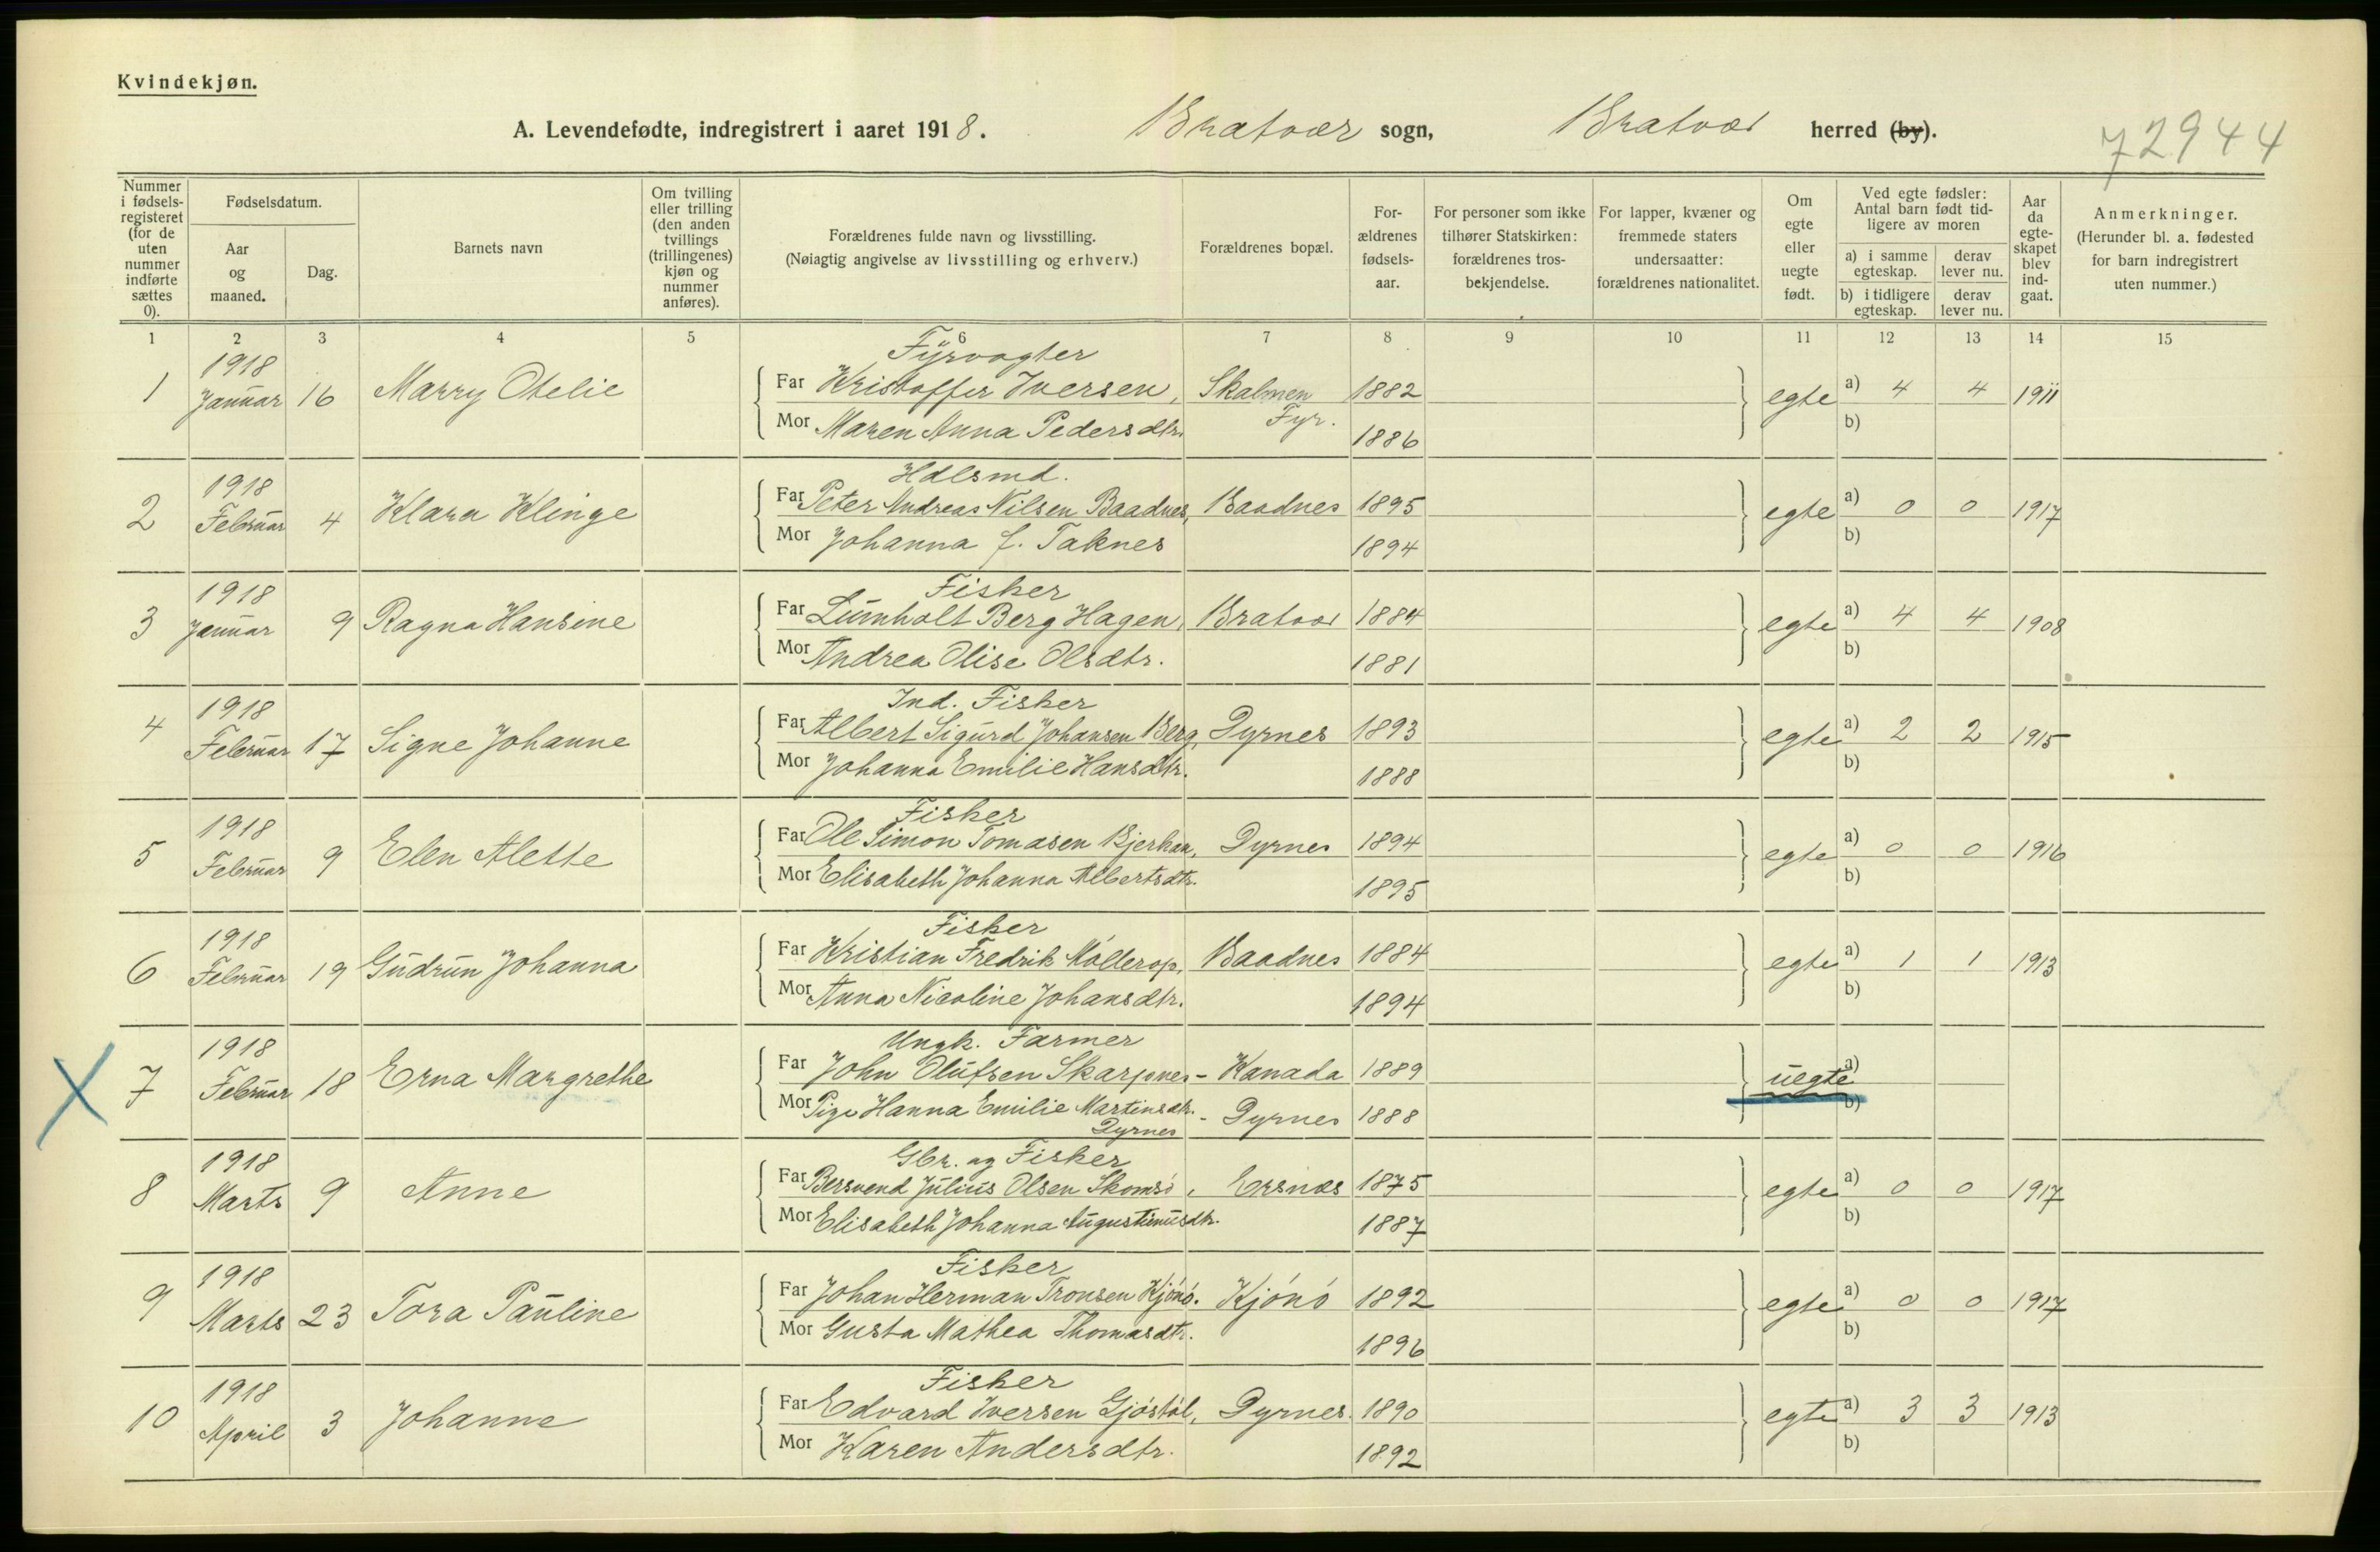 Kvindekjøn.
A. Levendefødte, indregistrert i aaret 1918. Bratvær sogn, Bratvær herred (by).
72944
Nummer i fødsels-registeret (for de uten nummer indførte sættes 0).
Fødselsdatum.
Aar og maaned.
Dag.
Barnets navn
Om tvilling eller trilling (den anden tvillings (trillingenes) kjøn og nummer anføres).
Forældrenes fulde navn og livsstilling.
(Nøiagtig angivelse av livsstilling og erhverv.)
Forældrenes bopæl.
For-ældrenes fødsels-aar.
For personer som ikke tilhører Statskirken: forældrenes tros-bekjendelse.
For lapper, kvæner og fremmede staters undersaatter: forældrenes nationalitet.
Om egte eller uegte født.
Ved egte fødsler: Antal barn født tid-ligere av moren
a) i samme egteskap.
derav lever nu.
b) i tidligere egteskap.
derav lever nu.
Aar da egte-skapet blev ind-gaat.
Anmerkninger.
(Herunder bl. a. fødested for barn indregistrert uten nummer.)
1 2 3 4 5 6 7 8 9 10 11 12 13 14 15
Fyrvogter
1 1918 Januar 16 Marry Otelie Far Kristoffer Iversen, Skalmen Fyr. 1882 egte a) 4 4 1911
Mor Maren Anna Pedersdtr. 1886 b)
Hdlsmd.
2 1918 Februar 4 Klara Klinge Far Peter Andreas Nilsen Baadnes, Baadnes 1895 egte a) 0 0 1917
Mor Johanna f. Taknes 1894 b)
Fisker
3 1918 Januar 9 Ragna Hansine Far Lumholt Berg Hagen, Bratvær 1884 egte a) 4 4 1908
Mor Andrea Olise Olsdtr. 1881 b)
Ind. Fisker
4 1918 Februar 17 Signe Johanne Far Albert Sigurd Johansen Berg, Dyrnes 1893 egte a) 2 2 1915
Mor Johanna Emilie Hansdtr. 1888 b)
Fisker
5 1918 Februar 9 Elen Alette Far Ole Simon Tomasen Bjerkan, Dyrnes 1894 egte a) 0 0 1916
Mor Elisabeth Johanna Albertsdtr. 1895 b)
Fisker
6 1918 Februar 19 Gudrun Johanna Far Kristian Fredrik Möllerop, Baadnes 1884 egte a) 1 1 1913
Mor Anna Nicoline Johansdtr. 1894 b)
Ungk. Farmer
X 7 1918 Februar 18 Erna Margrethe Far John Olufsen Skarpnes - Kanada 1889 uegte a)
Mor Pige Hanna Emilie Martinsdtr. Dyrnes - Dyrnes 1888 b)
Gbr. og Fisker
8 1918 Marts 9 Anne Far Bersvend Julius Olsen Skomsö, Ersnes 1875 egte a) 0 0 1917
Mor Elisabeth Johanna Augustinusdtr. 1887 b)
Fisker
9 1918 Marts 23 Tora Pauline Far Johan Herman Tronsen Kjönö. Kjönö 1892 egte a) 0 0 1917
Mor Gusta Mathea Thomasdtr. 1896 b)
Fisker
10 1918 April 3 Johanne Far Edvard Iversen Gjöstöl, Dyrnes. 1890 egte a) 3 3 1913
Mor Karen Andersdtr. 1892 b)